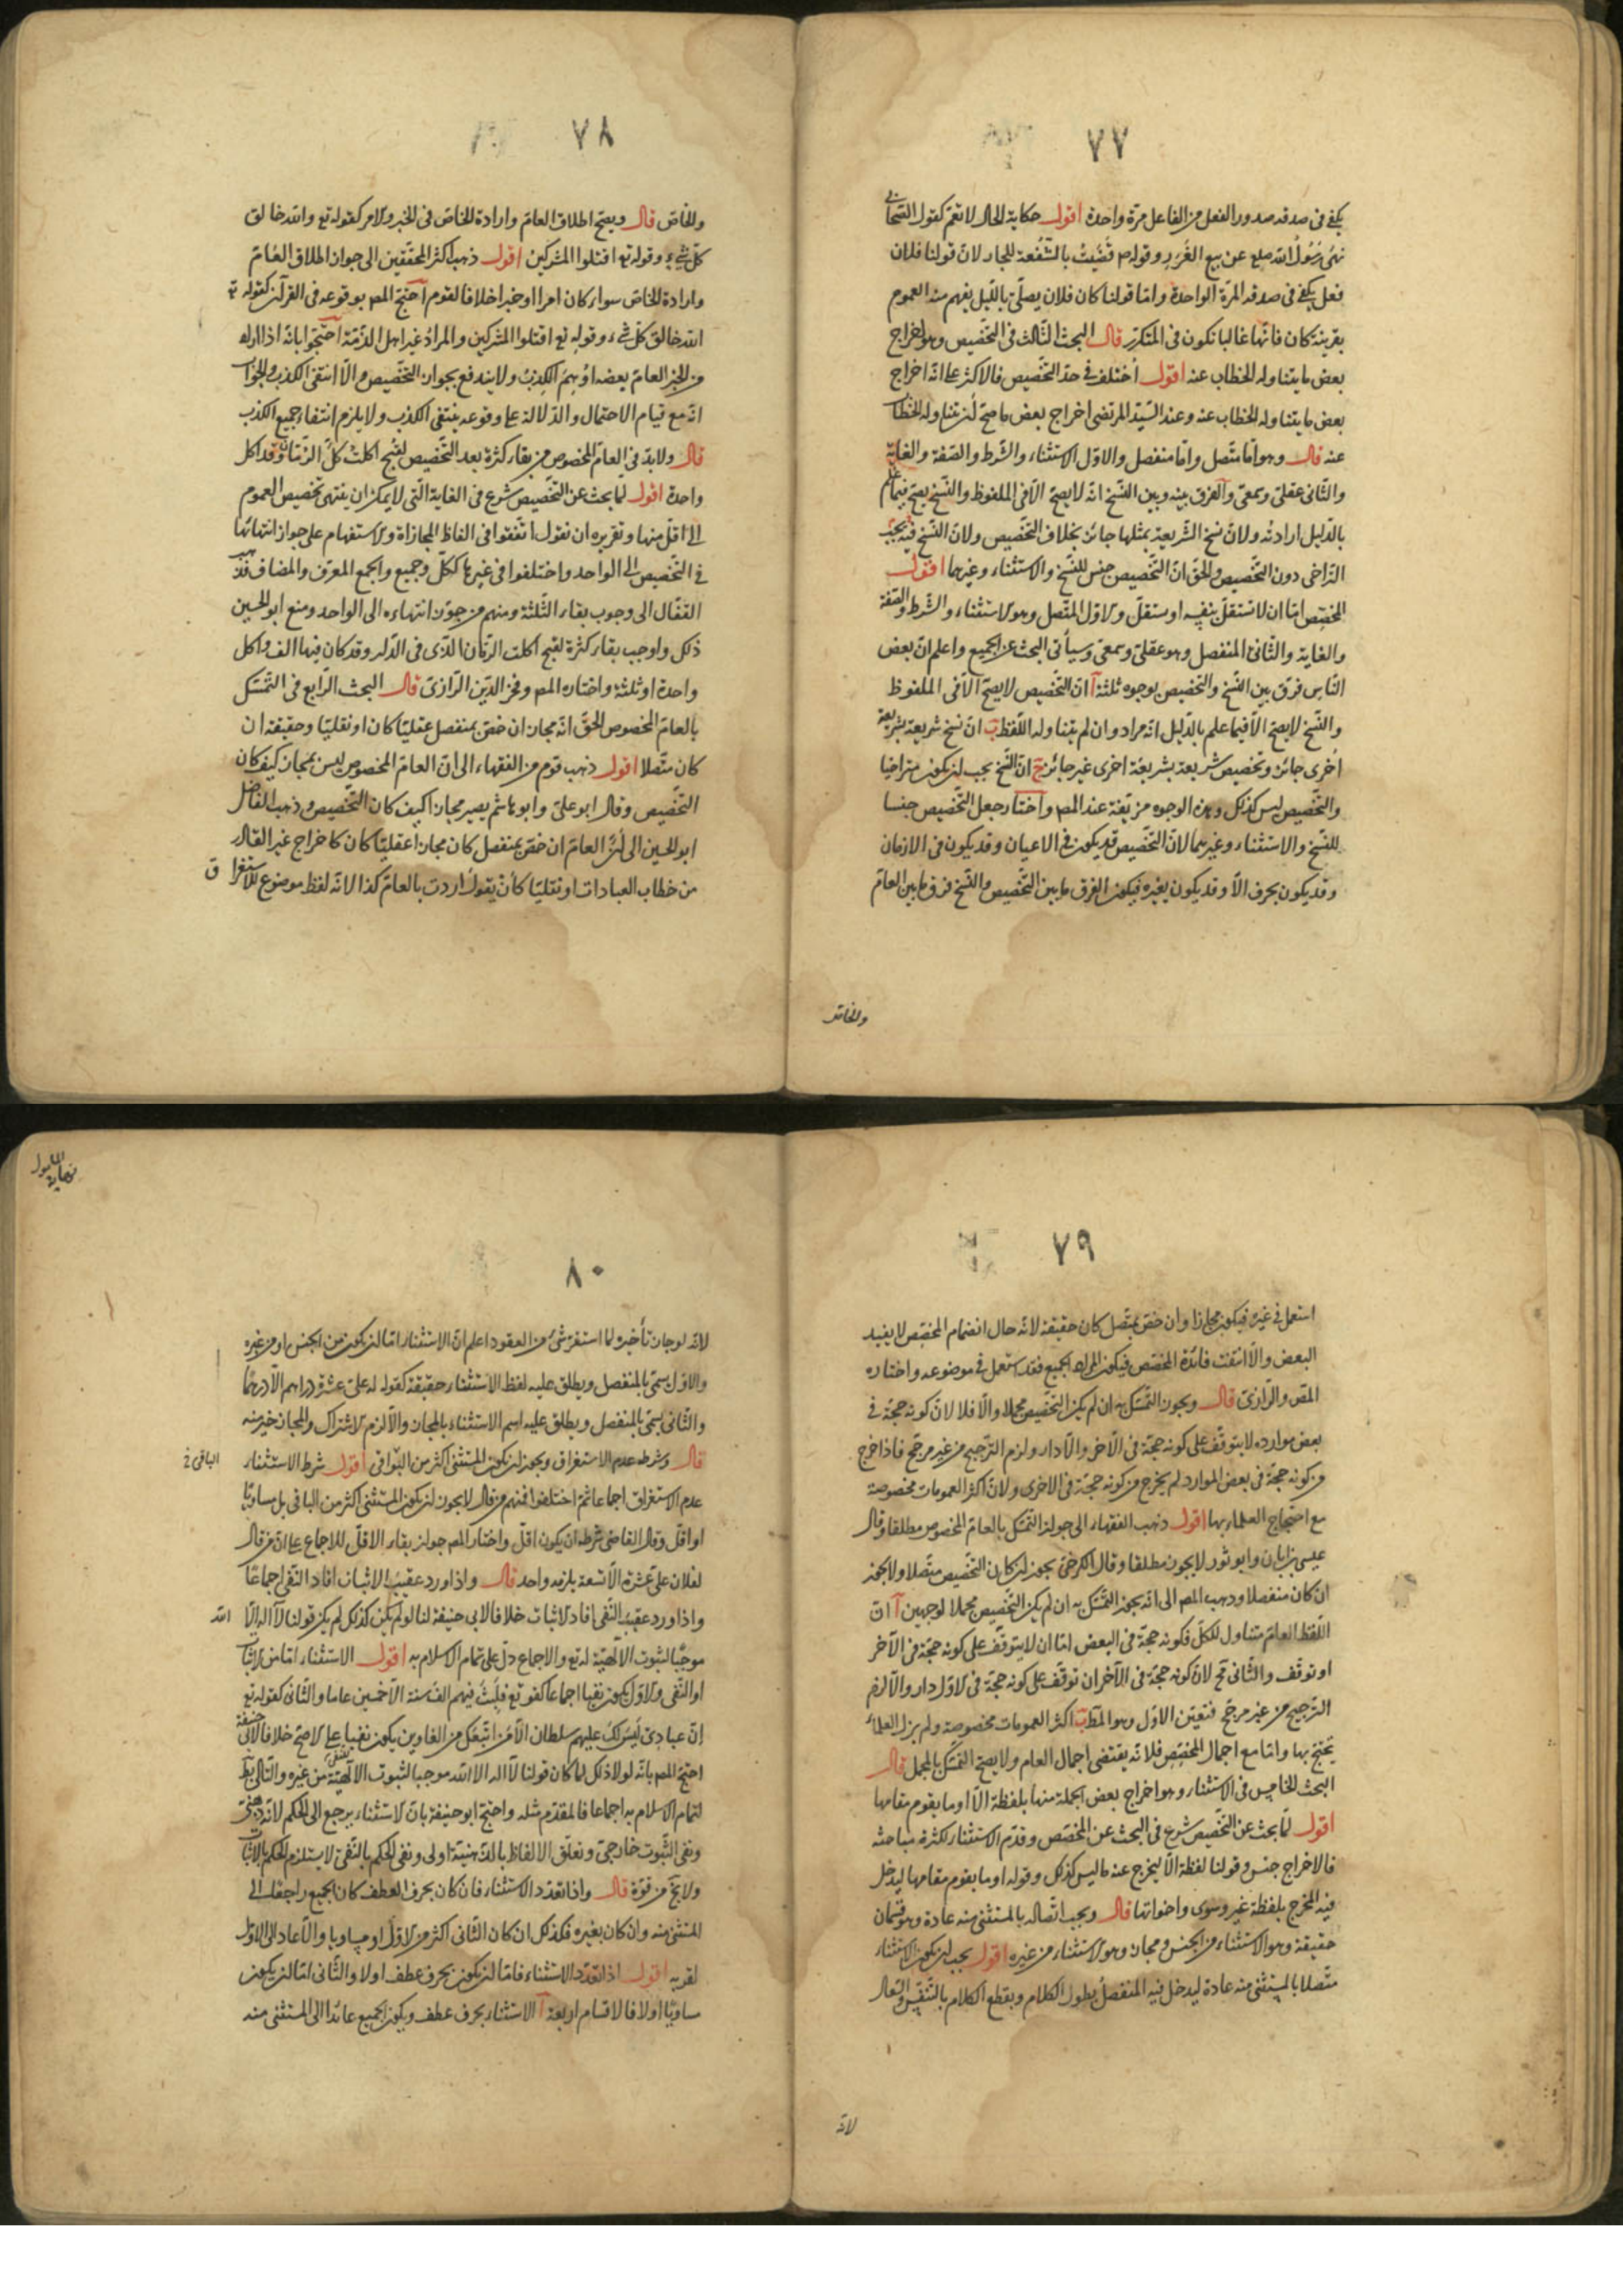 ٧٧
يكفى فى صدقه صدور الفعل من الفاعل مرّة واحدة اقول حكاية الحال لا تعمّ كقول الصّحابى
نهى رَسُولُ الله صلع عن بيع الغَرَر وقوله م قَضَيْتُ بالشُّفعة للجار لانّ قولنا فلان
فعل يكفى فى صدقه المرّة الواحدة وامّا قولنا كان فلان يصلّى بالليل يفهم منه العموم
بقرينة كان فانّها غالبا تكون فى المتكرّر قال البحث الثالث فى التخصيص وهو اخراج
بعض ما يتناوله الخطاب عنه اقول اختلف فى حدّ التخصيص فالاكثر على انّه اخراج
بعض ما يتناوله الخطاب عنه وعند السّيّد المرتضى اخراج بعض ما صحّ ان يتناوله الخطاب
عنه قال وهو امّا متّصل وامّا منفصل والاوّل الاستثناء والشّرط والصّفة والغاية
والثّانى عقلىّ وسمعىّ والفرق بينه وبين النّسخ انّه لا يصحّ الّا فى الملفوظ والنّسخ يصحّ فيما علم
بالدّليل ارادته ولانّ نسخ الشّريعة بمثلها جائز بخلاف التخصيص ولانّ النّسخ فيه يجب
التّراخى دون التّخصيص والحقّ انّ التّخصيص جنس للنّسخ والاستثناء وغيرهما اقول
المخصّص امّا ان لا تستقلّ بنفسه او يستقلّ والاوّل المتّصل وهو الاستثناء والشّرط والصّفة
والغاية والثّانى المنفصل وهو عقلىّ وسمعىّ وسيأتى البحث عن الجميع واعلم انّ بعض
النّاس فرق بين النّسخ والتّخصيص بوجوه ثلثة آ انّ التّخصيص لا يصحّ الّا فى الملفوظ
والنّسخ لا يصحّ الّا فيما علم بالدّليل انّه مراد وان لم يتناوله اللّفظ ب انّ نسخ شريعة بشريعة
اخرى جائز وتخصيص شريعة بشريعة اخرى غير جائز ج انّ النّسخ يجب ان يكون متراخيا
والتّخصيص ليس كذلك وهذه الوجوه مزيّفة عند المص واختار جعل التّخصيص جنسا
للنّسخ والاستثناء وغيرهما لانّ التّخصيص قد يكون فى الاعيان وقد يكون فى الازمان
وقد يكون بحرف الّا وقد يكون بغيره فيكون الفرق ما بين التّخصيص والنّسخ فرق ما بين العامّ
والخاصّ
٧٨
والخاصّ قال ويصحّ اطلاق العامّ وارادة الخاصّ فى الخبر والامر كقوله تع والله خالق
كلّ شىء وقوله تع اقتلوا المشركين اقول ذهب اكثر المحقّقين الى جواز اطلاق العامّ
وارادة الخاصّ سواء كان امرا او خبرا خلافا لقوم احتجّ المص بوقوعه فى القرآن كقوله تع
الله خالق كلّ شىء وقوله تع اقتلوا المشركين والمراد غير اهل الذّمّة احتجّوا بانّه اذا اراد
من الخبر العامّ بعضه اوهم الكذب ولا يندفع بجواز التّخصيص والّا انتفى الكذب والجواب
انّه مع قيام الاحتمال والدّلالة على وقوعه ينتفى الكذب ولا يلزم انتفاء جميع الكذب
قال ولا بدّ فى العامّ المخصوص من بقاء كثرة بعد التّخصيص لقبح اكلت كلّ الرّمّان وقد اكل
واحدة اقول لمّا بحث عن التّخصيص شرع فى الغاية الّتى لا يمكن ان ينتهى تخصيص العموم
الى اقلّ منها وتقريره ان نقول اتّفقوا فى الفاظ المجازاة والاستفهام على جواز انتهائها
فى التّخصيص الى الواحد واختلفوا فى غيرها ككلّ وجميع والجمع المعرّف والمضاف فذهب
القفّال الى وجوب بقاء الثّلثة ومنهم من جوّز انتهاءه الى الواحد ومنع ابو الحسين
ذلك واوجب بقاء كثرة لقبح اكلت الرمّان الّذى فى الدّار وقد كان فيها الف واكل
واحدة او ثلثة واختاره المص وفخر الدّين الرّازىّ قال البحث الرّابع فى التّمسّك
بالعامّ المخصوص الحقّ انّه مجاز ان خصّ بمنفصل عقليّا كان او نقليّا وحقيقة ان
كان متّصلا اقول ذهب قوم من الفقهاء الى انّ العامّ المخصوص ليس بمجاز كيف كان
التّخصيص وقال ابو علىّ وابو هاشم يصير مجازا كيف كان التّخصيص وذهب الفاضل
ابو الحسين الى انّ العامّ ان خصّ بمنفصل كان مجازا عقليّا كان كاخراج غير القادر
من خطاب العبادات او نقليّا كأن يقول اردت بالعامّ كذا لانّه لفظ موضوع للاستغراق
٧٩
استعمل فى غيره فيكون مجازا وان خصّ بمتّصل كان حقيقة لانّه حال انضمام المخصّص لا يفيد
البعض والّا انتفت فائدة المخصّص فيكون المراد الجميع فقد استعمل فى موضوعه واختاره
المص والرّازىّ قال ويجوز التّمسّك به ان لم يكن التّخصيص مجملا والّا فلا لانّ كونه حجّة فى
بعض موارده لا يتوقّف على كونه حجّة فى الآخر والّا دار ولزم التّرجيح من غير مرجّح فاذا خرج
من كونه حجّة فى بعض الموارد لم يخرج من كونه حجّة فى الاخرى ولانّ اكثر العمومات مخصوصة
مع احتجاج العلماء بها اقول ذهب الفقهاء الى جواز التّمسّك بالعامّ المخصوص مطلقا وقال
عيسى بن ابان وابو ثور لا يجوز مطلقا وقال الكرخىّ يجوز ان كان التّخصيص متّصلا ولا يجوز
ان كان منفصلا وذهب المص الى انّه يجوز التّمسّك به ان لم يكن التّخصيص مجملا لوجهين آ انّ
اللّفظ العامّ متناول للكلّ فكونه حجّة فى البعض امّا ان لا يتوقّف على كونه حجّة فى الآخر
او توقّف والثّانى مح لانّ كونه حجّة فى الآخر ان توقّف على كونه حجّة فى الاوّل دار والّا لزم
التّرجيح من غير مرجّح فتعيّن الاوّل وهو المط ب اكثر العمومات مخصوصة ولم يزل العلماء
يحتجّ بها وامّا مع اجمال المخصّص فلانّه يقتضى اجمال العام ولا يصحّ التّمسّك بالمجمل قال
البحث الخامس فى الاستثناء وهو اخراج بعض الجملة منها بلفظة الّا او ما يقوم مقامها
اقول لمّا بحث عن التّخصيص شرع فى البحث عن المخصّص وقدّم الاستثناء لكثرة مباحثه
فالاخراج جنس وقولنا لفظة الّا ليخرج عنه ما ليس كذلك وقوله او ما يقوم مقامها ليدخل
فيه المخرج بلفظة غير وسوى واخواتها قال ويجب اتّصاله بالمستثنى منه عادة وهو قسمان
حقيقة وهو الاستثناء من الجنس ومجاز وهو الاستثناء من غيره اقول يجب ان يكون الاستثناء
متّصلا بالمستثنى منه عادة ليدخل فيه المنفصل بطول الكلام وبقطع الكلام بالتّنفّس والسّعال
لانّه
٨٠
لانّه لو جاز تأخيره لما استقرّ شىء من العقود اعلم انّ الاستثناء امّا ان يكون من الجنس او من غيره
والاوّل يسمّى بالمنفصل ويطلق عليه لفظ الاستثناء حقيقة كقوله له علىّ عشرة دراهم الّا درهمًا
والثّانى يسمّى بالمنفصل ويطلق عليه اسم الاستثناء بالمجاز والّا لزم الاشتراك والمجاز خير منه
قال وشرطه عدم الاستغراق ويجوز ان يكون المستثنى اكثر من البواقى اقول شرط الاستثناء
الباقى خ
عدم الاستغراق اجماعا ثمّ اختلفوا فمنهم من قال لا يجوز ان يكون المستثنى اكثر من الباقى بل مساويًا
او اقلّ وقال القاضى شرطه ان يكون اقلّ واختار المص جواز بقاء الاقلّ للاجماع على انّ من قال
لفلان علىّ عشرة الّا تسعة يلزمه واحد قال واذا ورد عقيب الاثبات افاد النّفى اجماعًا
واذا ورد عقيب النّفى افاد الاثبات خلافا لابى حنيفة لنا لو لم يكن كذلك لم يكن قولنا لا اله الّا الله
موجبًا لثبوت الالٰهيّة له تع والاجماع دلّ على تمام الاسلام به اقول الاستثناء امّا من الاثبات
او النّفى والاوّل يكون نفيا اجماعا كقوله تع فلبث فيهم الف سنة الّا خمسين عاما والثّانى كقوله تع
انّ عبادى ليس لك عليهم سلطان الّا من اتّبعك من الغاوين يكون نفيا على الاصحّ خلافا لابى حنيفة
احتجّ المص بانّه لولا ذلك لما كان قولنا لا اله الا الله موجبا لثبوت الالٰهيّة من غيره والتّالى بط
لتمام الاسلام به اجماعا فالمقدّم مثله واحتجّ ابو حنيفة بانّ الاستثناء يرجع الى الحكم لانّه ذهنىّ
ونفى الثّبوت خارجىّ وتعلّق الالفاظ بالذّهنيّة اولى ونفى الحكم بالنّفى لا يستلزم الحكم بالاثبات
ولا يخ من قوّة قال واذا تعدّد الاستثناء فان كان بحرف العطف كان الجميع راجعًا الى
المستثنى منه وان كان بغيره فكذلك ان كان الثّانى اكثر من الاوّل او مساويا والّا عاد الى الاوّل
لقربه اقول اذا تعدّد الاستثناء فامّا ان يكون بحرف عطف اولا والثّانى امّا ان يكون
مساويًا اولا فالاقسام اربعة آ الاستثناء بحرف عطف ويكون الجميع عائدا الى المستثنى منه